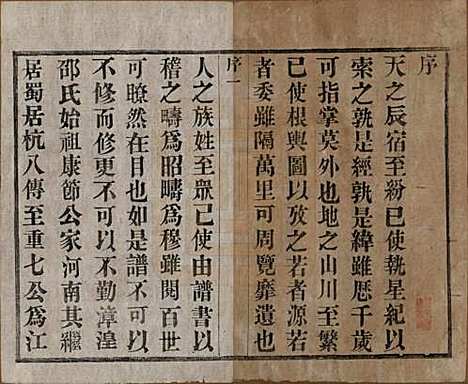 序
天之辰宿至紛已使執星紀以
索之孰是經孰是緯雖歷千歲
可指掌莫外也地之山川至繁
已使根輿圖以攷之若者源若
者委雖隔萬里可周覽靡遺也
序一
人之族姓至眾已使由譜書以
稽之疇為昭疇為穆雖閱百世
可瞭然在目也如是譜不可以
不修而修更不可以不勤漳湟
邵氏始祖康節公家河南其繼
居蜀居杭八傳至重七公為江